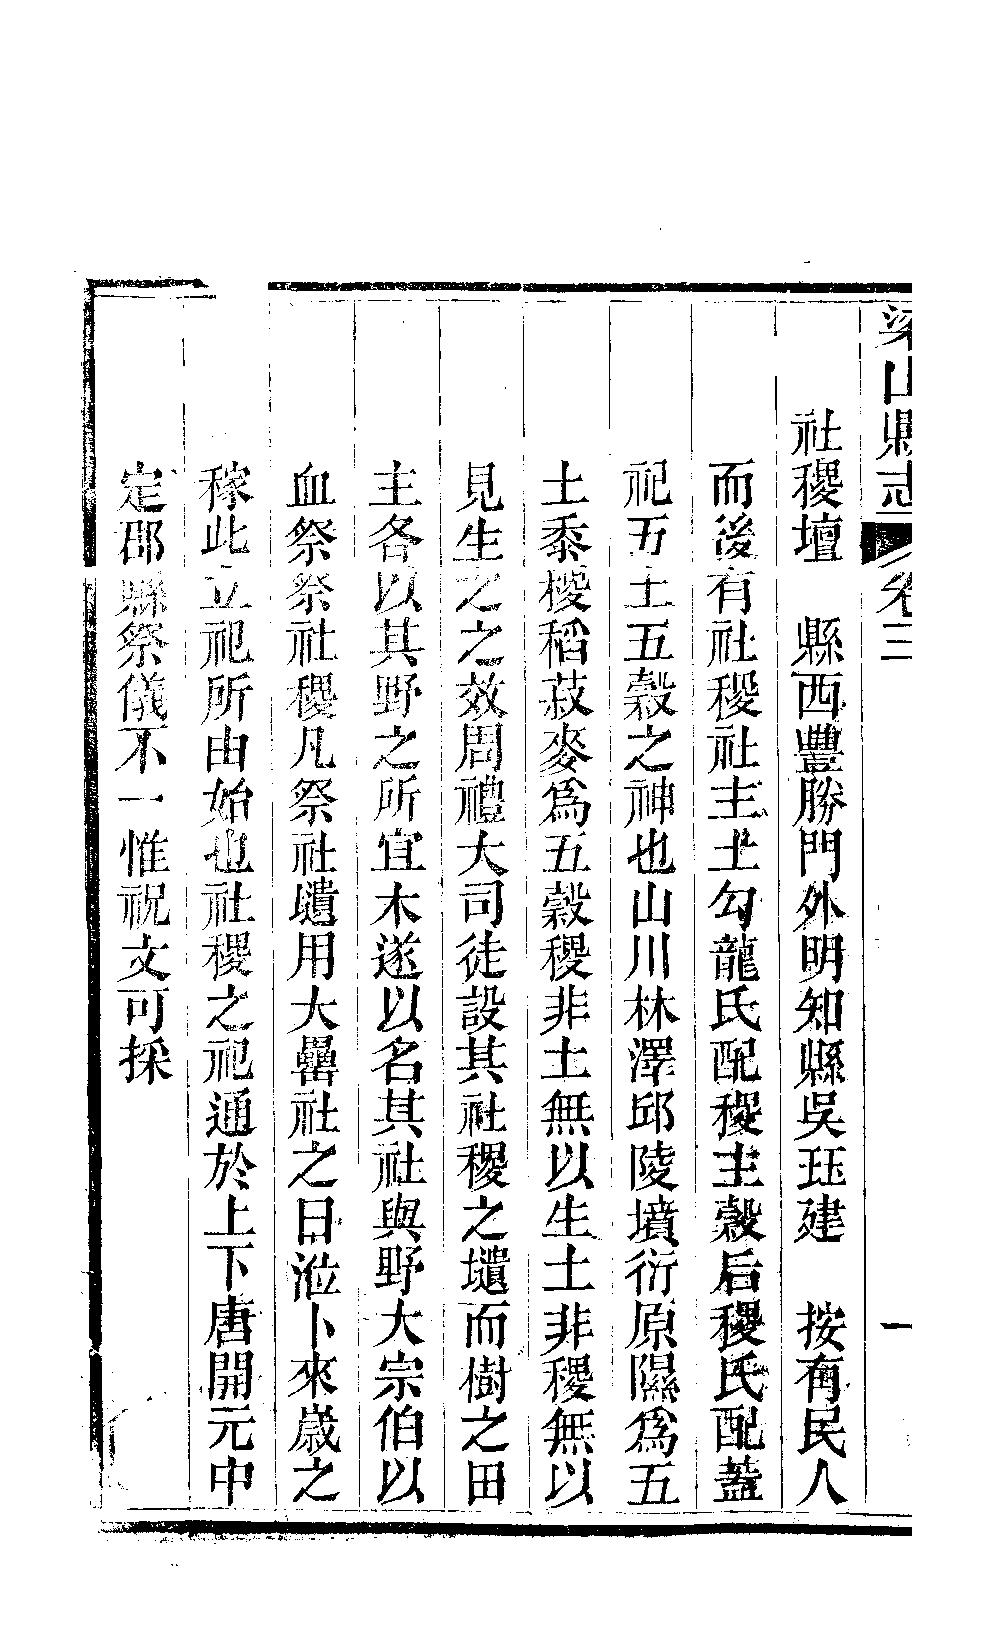 梁山縣志 卷三 一
社稷壇 縣西豐勝門外明知縣吳珏建 按有民人
而後有社稷社主土勾龍氏配稷主穀后稷氏配蓋
祀五土五穀之神也山川林澤邱陵墳衍原隰爲五
土黍稷稻菽麥爲五穀稷非土無以生土非稷無以
見生生之效周禮大司徒設其社稷之壝而樹之田
主各以其野之所宜木遂以名其社與野大宗伯以
血祭祭社稷凡祭社壝用大罍社之日涖卜來歲之
稼此立祀所由始也社稷之祀通於上下唐開元中
定郡縣祭儀不一惟祝文可採